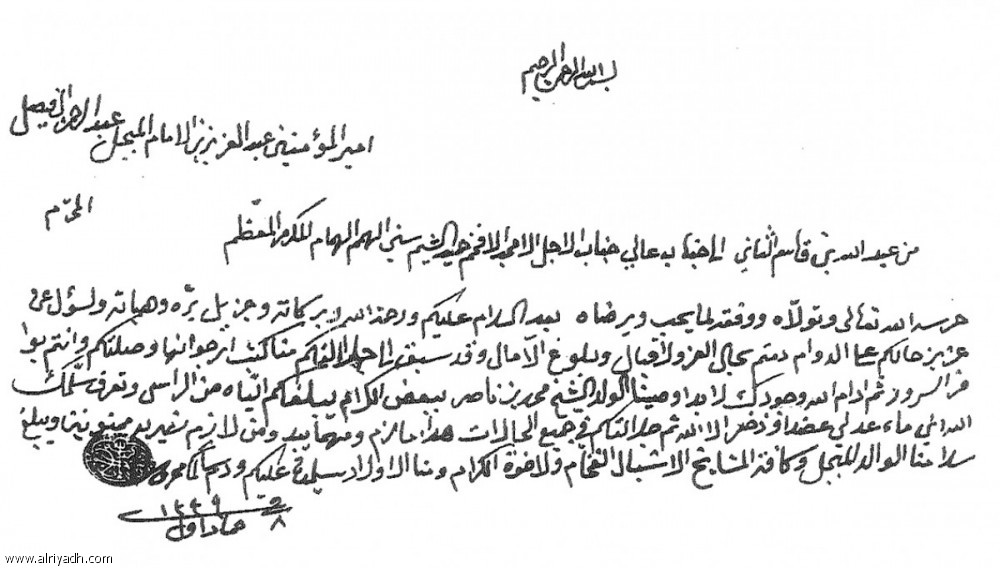 بسم الله الرحمن الرحيم
امير المؤمنين عبد العزيز بن الامام المبجل عبد الرحمن الفيصل
المحترم
من عبد الله بن قاسم الثاني الى جناب عالي جناب الاجل الامجد الافخم حميد الشيم سني الهمم الهمام المكرم المعظم
حرسه الله تعالى وتولاه ووفقه لما يحب ويرضاه بعد السلام عليكم ورحمة الله وبركاته وجزيل بره وهباته ولسؤال عن
عزيز حالكم على الدوام دمتم بحال العز والاقبال وبلوغ الآمال وقد سبق الى اجلالكم منا كتب ارجو انها وصلتكم وانتم بوا
فر السرور ثم ادام الله وجودك لا بد اوصينا الولد الشيخ محمد بن ناصر ببعض الكلام يبلغكم اياه من الراس وتعرف سلمك
الله اني ما عد لي عضد او ذخر الا الله ثم جلالتكم في جميع الحالات هذا ما لزم ومهما يبد ومن لازم نفيد به ممنونين ويبلغ
سلامنا الوالد المبجل وكافة المشايخ الاشبال الفخام ولاخوة الكرام ومنا الاولاد يسلمون عليكم ودمتم سالمين محروسين
٨ ١٣٤٩